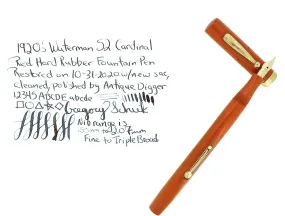 1920's Waterman 52 Cardinal
Red Hard Rubber Fountain Pen
Restored on 10-31-2020 w/new sac,
cleaned, polished by Antique Digger
12345 ABCDE abcde
Gregory
Nib range is
to 2.07mm
Fine to Triple Broad